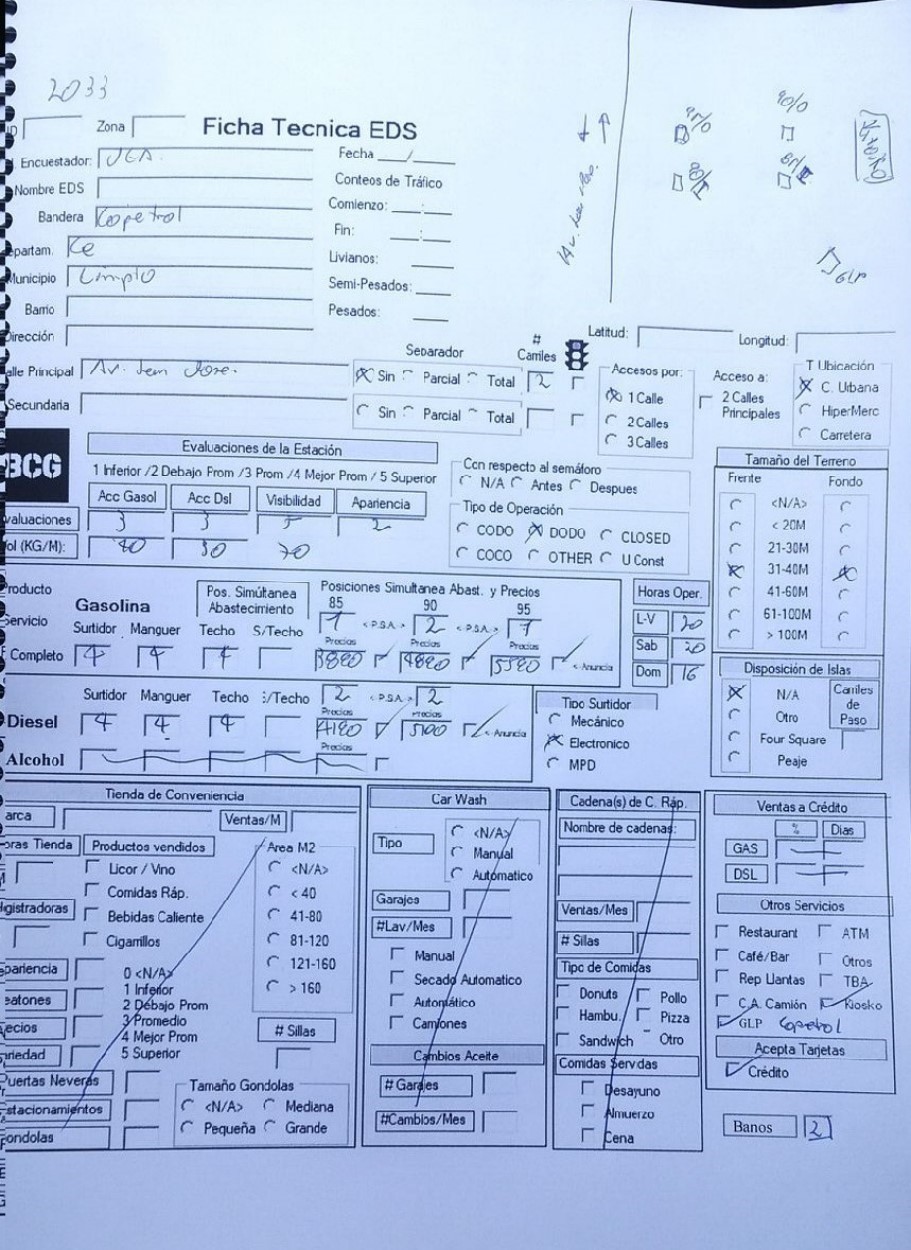 2033
Zona
Ficha Tecnica EDS
Encuestador:
Fecha __/__
Nombre EDS
Conteos de Tráfico
Bandera Copetrol
Comienzo: __:__
Fin: __:__
epartam. Ce
Livianos:
Municipio Limpio
Semi-Pesados:
Barrio
Pesados:
Dirección
Latitud:
Longitud:
90/0
GLP
alle Principal Av. San Jose.
Separador
# Carriles
Sin Parcial Total 2
Secundaria
Sin Parcial Total
Accesos por:
1 Calle
2 Calles
3 Calles
Acceso a:
2 Calles
Principales
T Ubicación
C. Urbana
HiperMerc
Carretera
BCG
Evaluaciones de la Estación
1 Inferior /2 Debajo From /3 Prom /4 Mejor Prom / 5 Superior
Acc Gasol Acc Dsl Visibilidad Apariencia
valuaciones 3 3 2
ol (KG/M): 40 30 70
Con respecto al semáforo
N/A Antes Despues
Tipo de Operación
CODO DODO CLOSED
COCO OTHER U Const
Tamaño del Terreno
Frente Fondo
<N/A>
< 20M
21-30M
31-40M
41-60M
61-100M
> 100M
roducto
ervicio
Completo
Gasolina
Pos. Simútanea
Abastecimiento
Posiciones Simultanea Abast. y Precios
85 90 95
Surtidor Manguer Techo S/Techo
1 <P.S.A.> 2 <P.S.A.> 1
Precios Precios Precios
4 4 4
3880 4820 5580 <-Anuncia
Horas Oper.
L-V 20
Sab 20
Dom 16
Diesel
Surtidor Manguer Techo S/Techo
2 <P.S.A.> 2
Precios Precios
4 4 4
4180 5100 <-Anuncia
Alcohol
Precios
Tipo Surtidor
Mecánico
Electronico
MPD
Disposición de Islas
N/A
Otro
Four Square
Peaje
Carriles
de
Paso
Tienda de Conveniencia
arca
Ventas/M
oras Tienda
Productos vendidos
Licor / Vino
Comidas Ráp.
Bebidas Caliente
Cigarrillos
Area M2
<N/A>
< 40
41-80
81-120
121-160
> 160
egistradoras
pariencia
eatones
ecios
ariedad
0 <N/A>
1 Inferior
2 Debajo Prom
3 Promedio
4 Mejor Prom
5 Superior
# Sillas
uertas Neveras
stacionamientos
ondolas
Tamaño Gondolas
<N/A> Mediana
Pequeña Grande
Car Wash
Tipo
<N/A>
Manual
Automatico
Garajes
#Lav/Mes
Manual
Secado Automatico
Automático
Camiones
Cambios Aceite
# Garajes
#Cambios/Mes
Cadena(s) de C. Ráp.
Nombre de cadenas:
Ventas/Mes
# Sillas
Tipo de Comidas
Donuts Pollo
Hambu. Pizza
Sandwich Otro
Comidas Servdas
Desayuno
Almuerzo
Cena
Ventas a Crédito
% Dias
GAS
DSL
Otros Servicios
Restaurant ATM
Café/Bar Otros
Rep Llantas TBA
C.A. Camión Kiosko
GLP Copetrol
Acepta Tarjetas
Crédito
Banos 2